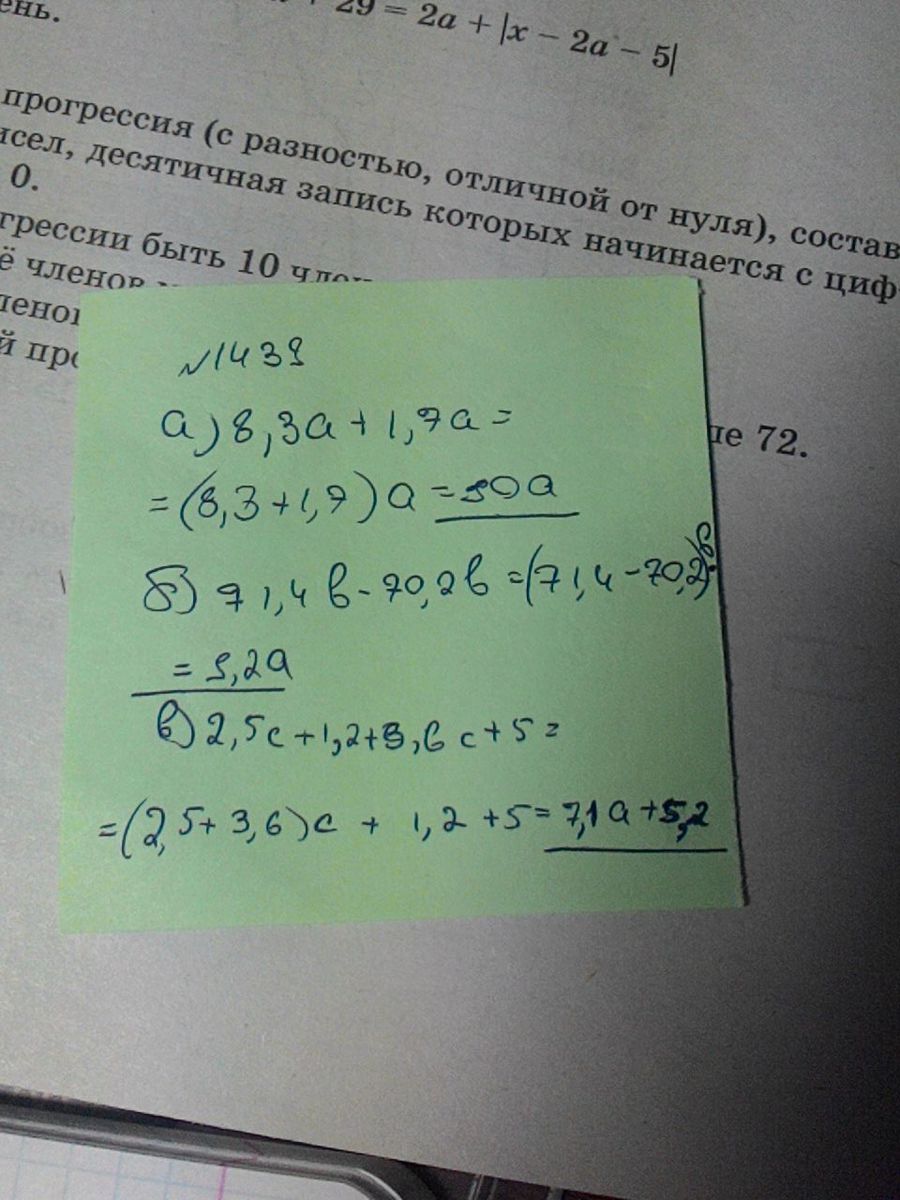 ень.
+ 29 = 2a + |x − 2a − 5|
прогрессия (с разностью, отличной от нуля), состав
исел, десятичная запись которых начинается с циф-
0.
грессии быть 10 член
ё членов
членов
й про
ле 72.
№1439
а) 8,3а + 1,7а =
= (8,3 + 1,7) а = 90а
б) 71,4в - 70,2в = (71,4 - 70,2)в
= 9,2а
в) 2,5с + 1,2 + 3,6с + 5 =
= (2,5 + 3,6)с + 1,2 + 5 = 7,1а + 5,2